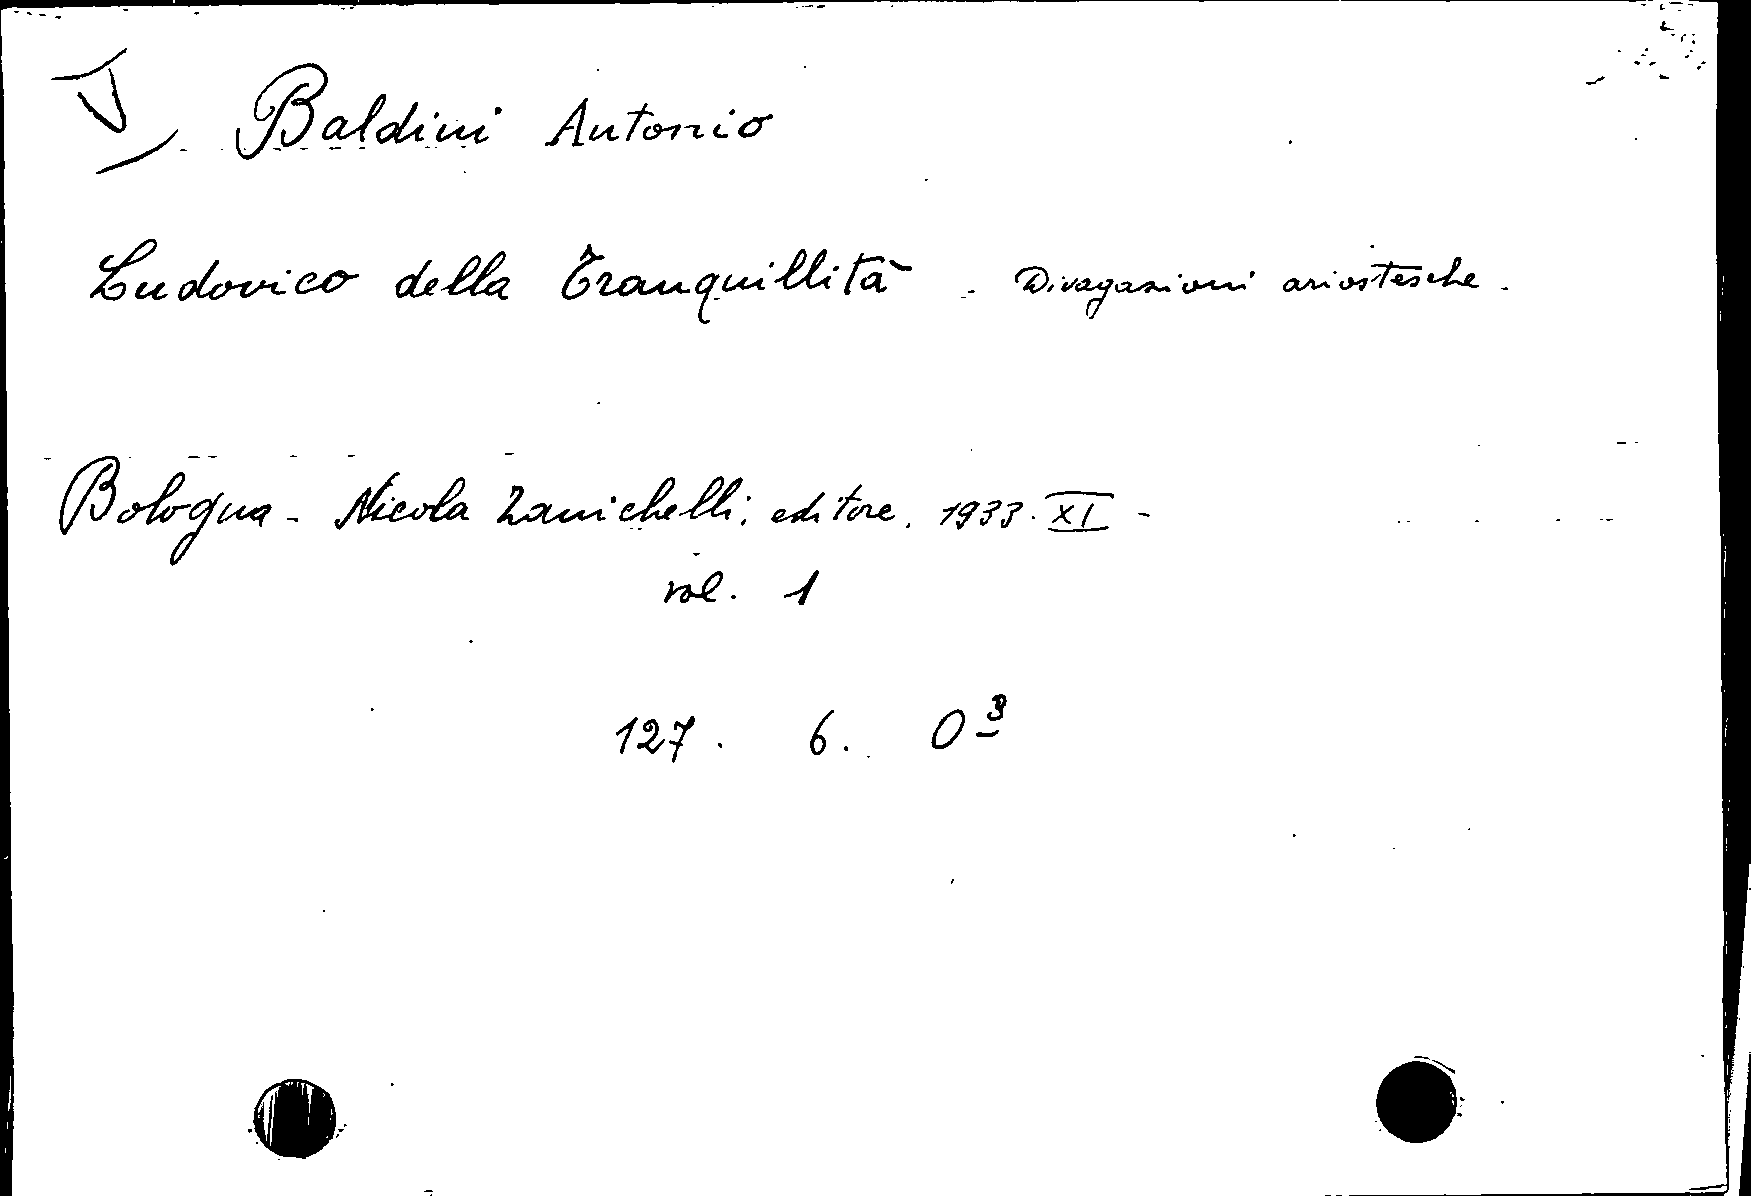 Baldini Antonio
Ludovico della Tranquillità - Divagazioni ariostesche.
Bologna - Nicola Zanichelli, editore. 1933. XI -
vol. 1
127. 6. O 3